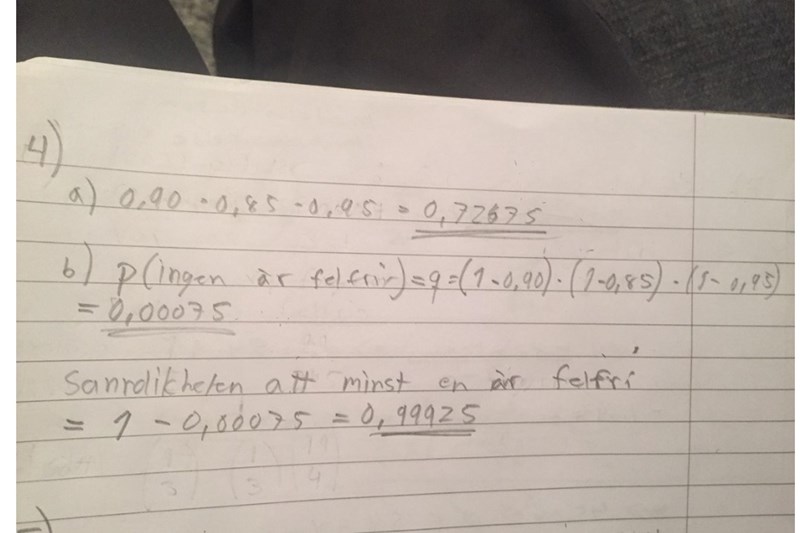 4)
a) 0,90 · 0,85 · 0,95 = 0,72675
b) p(ingen är felfri) = q = (1-0,90) · (1-0,85) · (1-0,95)
= 0,00075
Sanrolikheten att minst en är felfri
= 1 - 0,00075 = 0,99925